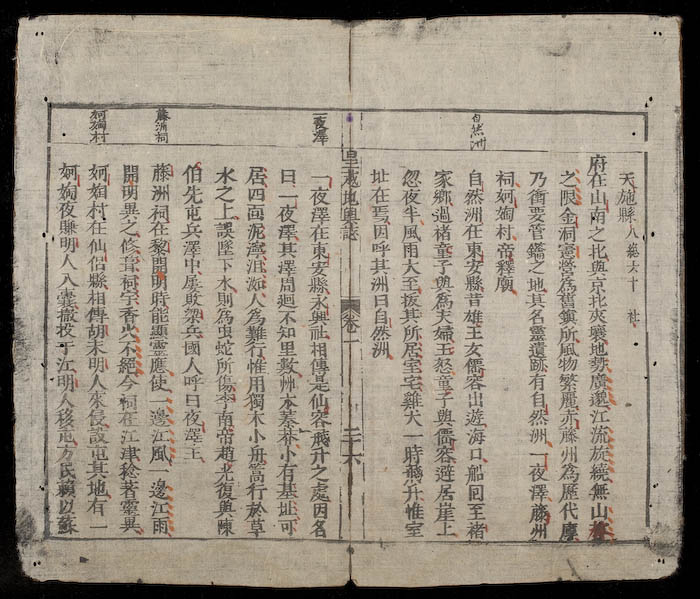 自然洲
一夜澤
藤洲祠
妸村
天施縣八總六十社
府在山南之北與京北夾襄地勢廣邈江流旋繞無山
之限金洞憲營為舊鎮所風物繁麗赤藤州為歷代鏖
乃衝要管鑰之地其名靈遺跡有自然洲一夜澤藤州
祠妸村帝釋廟
自然洲在東安縣昔雄王女儒容出遊海口船囘至褚
家鄉遇褚童子與為夫婦王怒童子與儒容避居崖上
忽夜半風雨大至拔其所居室宅雞犬一時飛升惟室
址在焉因呼其洲曰自然洲
皇越地輿誌 卷一 二十六
一夜澤在東安縣永興社相傳是仙容飛升之處因名
曰一夜澤其澤周廻不知里數艸木蓁莽小有基址可
居四面泥濘沮洳人為難行惟用獨木小舟篙行於草
水之上誤墜下水則為虫蛇所傷李南帝趙光復與陳
伯先屯兵澤中屢敗梁兵國人呼曰夜澤王
藤洲祠在黎開明時能顯靈應使一邊江風一邊江雨
開明異之修葺祠宇香火不絕今祠在江津稔著靈異
妸村在仙侶縣相傳胡末明人來侵設屯其地有一
妸夜賺明人入囊撒投于江明人移屯方民賴以蘇